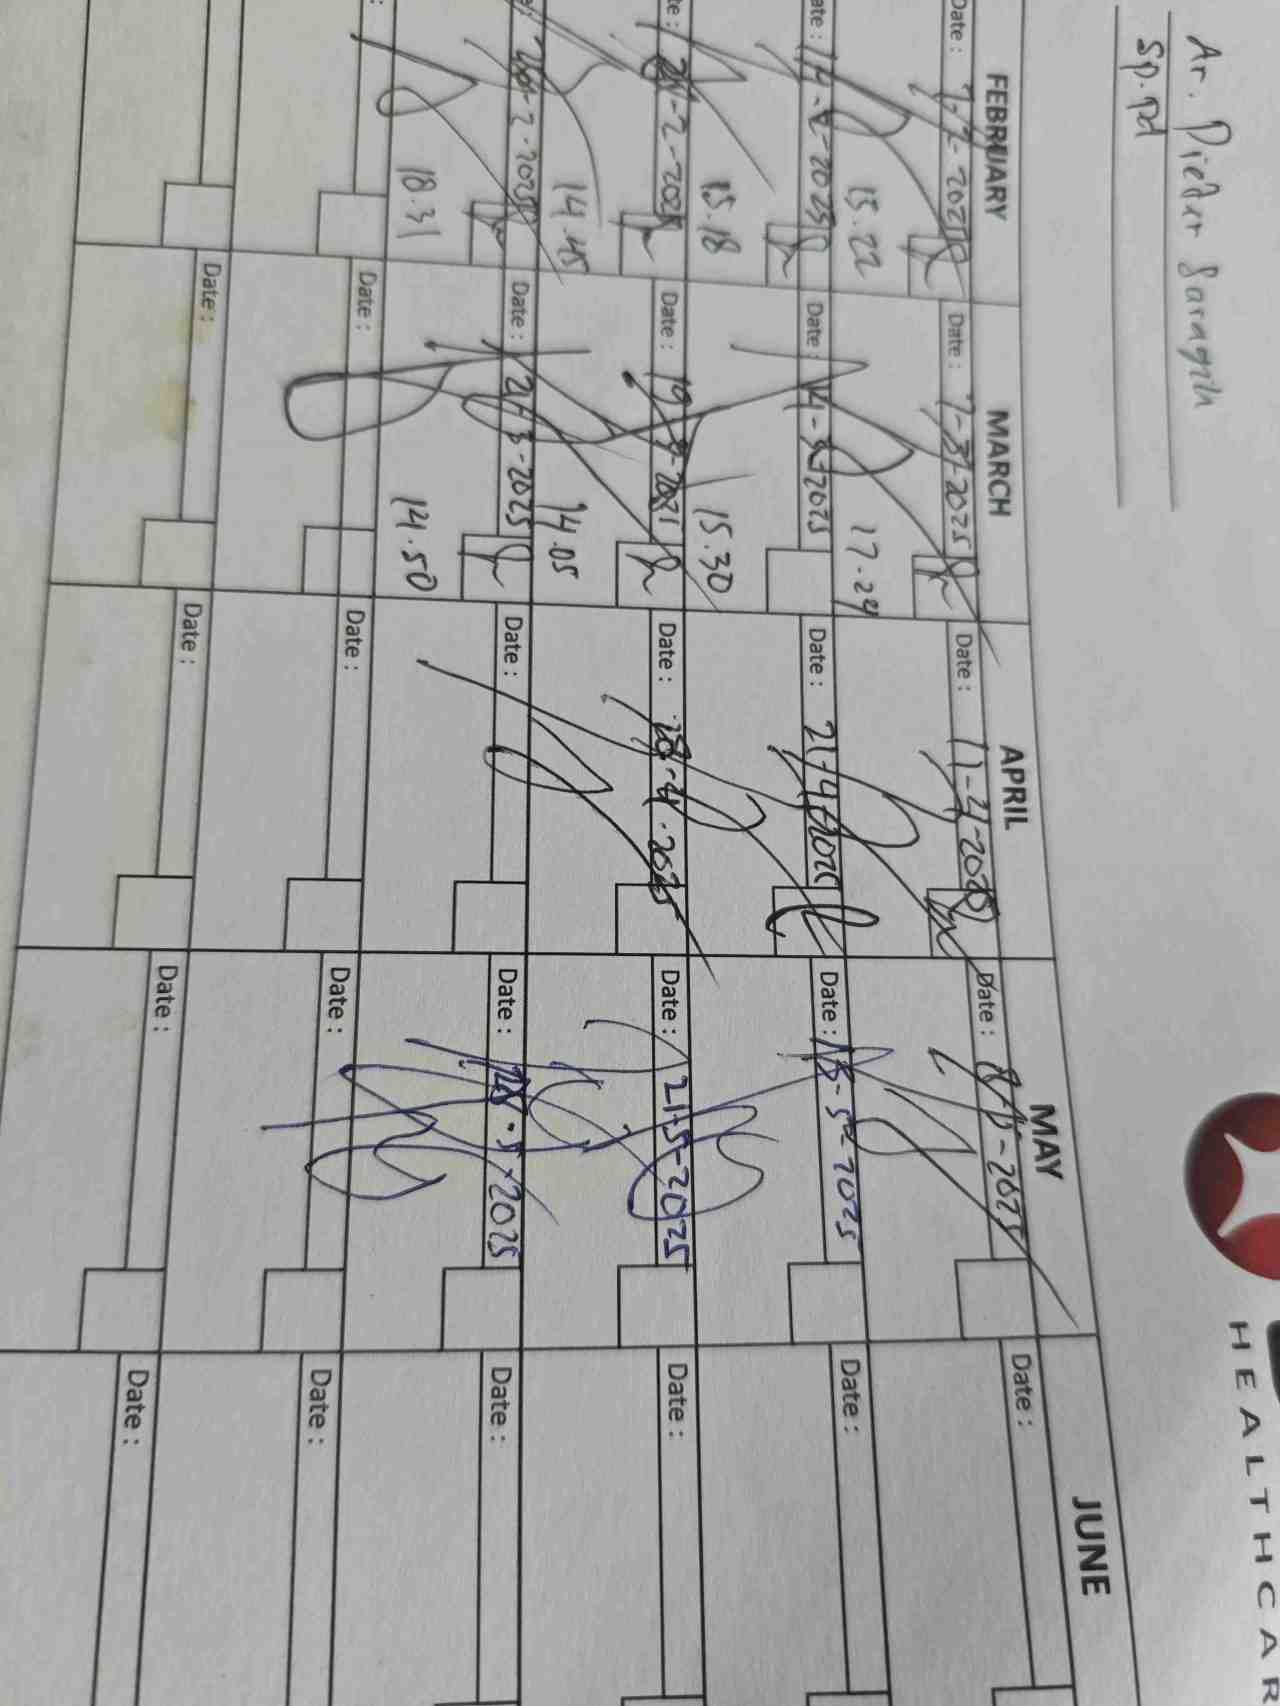 HEALTHCAR
Sp.Pd
FEBRUARY MARCH APRIL MAY JUNE
Date : 7-2-2025 Date : 7-3-2025 Date : 11-4-2025 Date : 8-5-2025 Date :
15.22 17.24
ate : 14-2-2025 Date : 14-3-2025 Date : 21-4-2025 Date : 15-5-2025 Date :
15.18 15.30
te : 21-2-2025 Date : 19-3-2025 Date : 28-4-2025 Date : 21-5-2025 Date :
14.45 14.05
28-2-2025 Date : 21-3-2025 Date : Date : 28-5-2025 Date :
18.31 14.50
: Date : Date : Date : Date :
Date : Date : Date : Date :